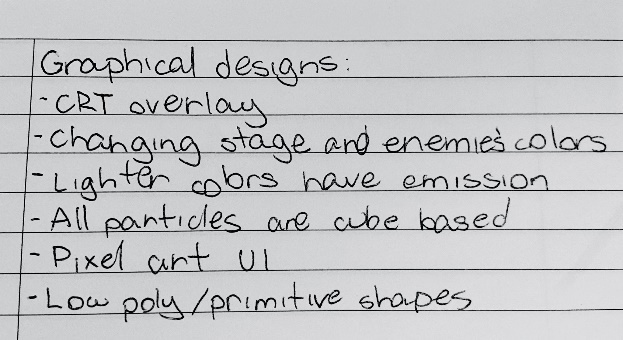 Graphical designs:
- CRT overlay
- Changing stage and enemies colors
- Lighter colors have emission
- All particles are cube based
- Pixel art UI
- Low poly/primitive shapes